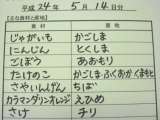 平成 24年 5月 14日分
【主な食材と産地】
食材 産地
じゃがいも かごしま
にんじん とくしま
ごぼう あおもり
たけのこ かごしま・ふくおか・くまもと
さやいんげん ちば
カラマンダリンオレンジ えひめ
さけ チリ